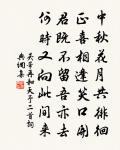 中秋花月共徘徊
正喜相逢笑口開
君既不留吾亦去
何時又向此間來
吳芾再和天予二首詞
典詞集